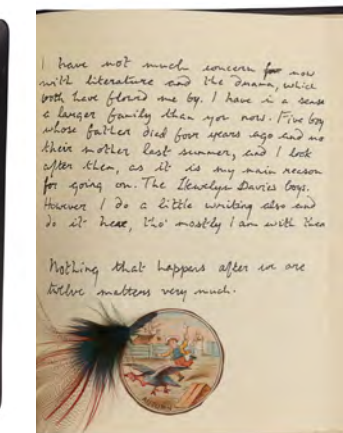 I have not much concern for now
with literature and the drama, which
both have flowed me by. I have in a sense
a larger family than you now. Five boys
whose father died four years ago and now
their mother last summer, and I look
after them, as it is my main reason
for going on. The Llewelyn Davies boys.
However I do a little writing also and
do it here, tho' mostly I am with them
Nothing that happens after we are
twelve matters very much.
AUTUMN